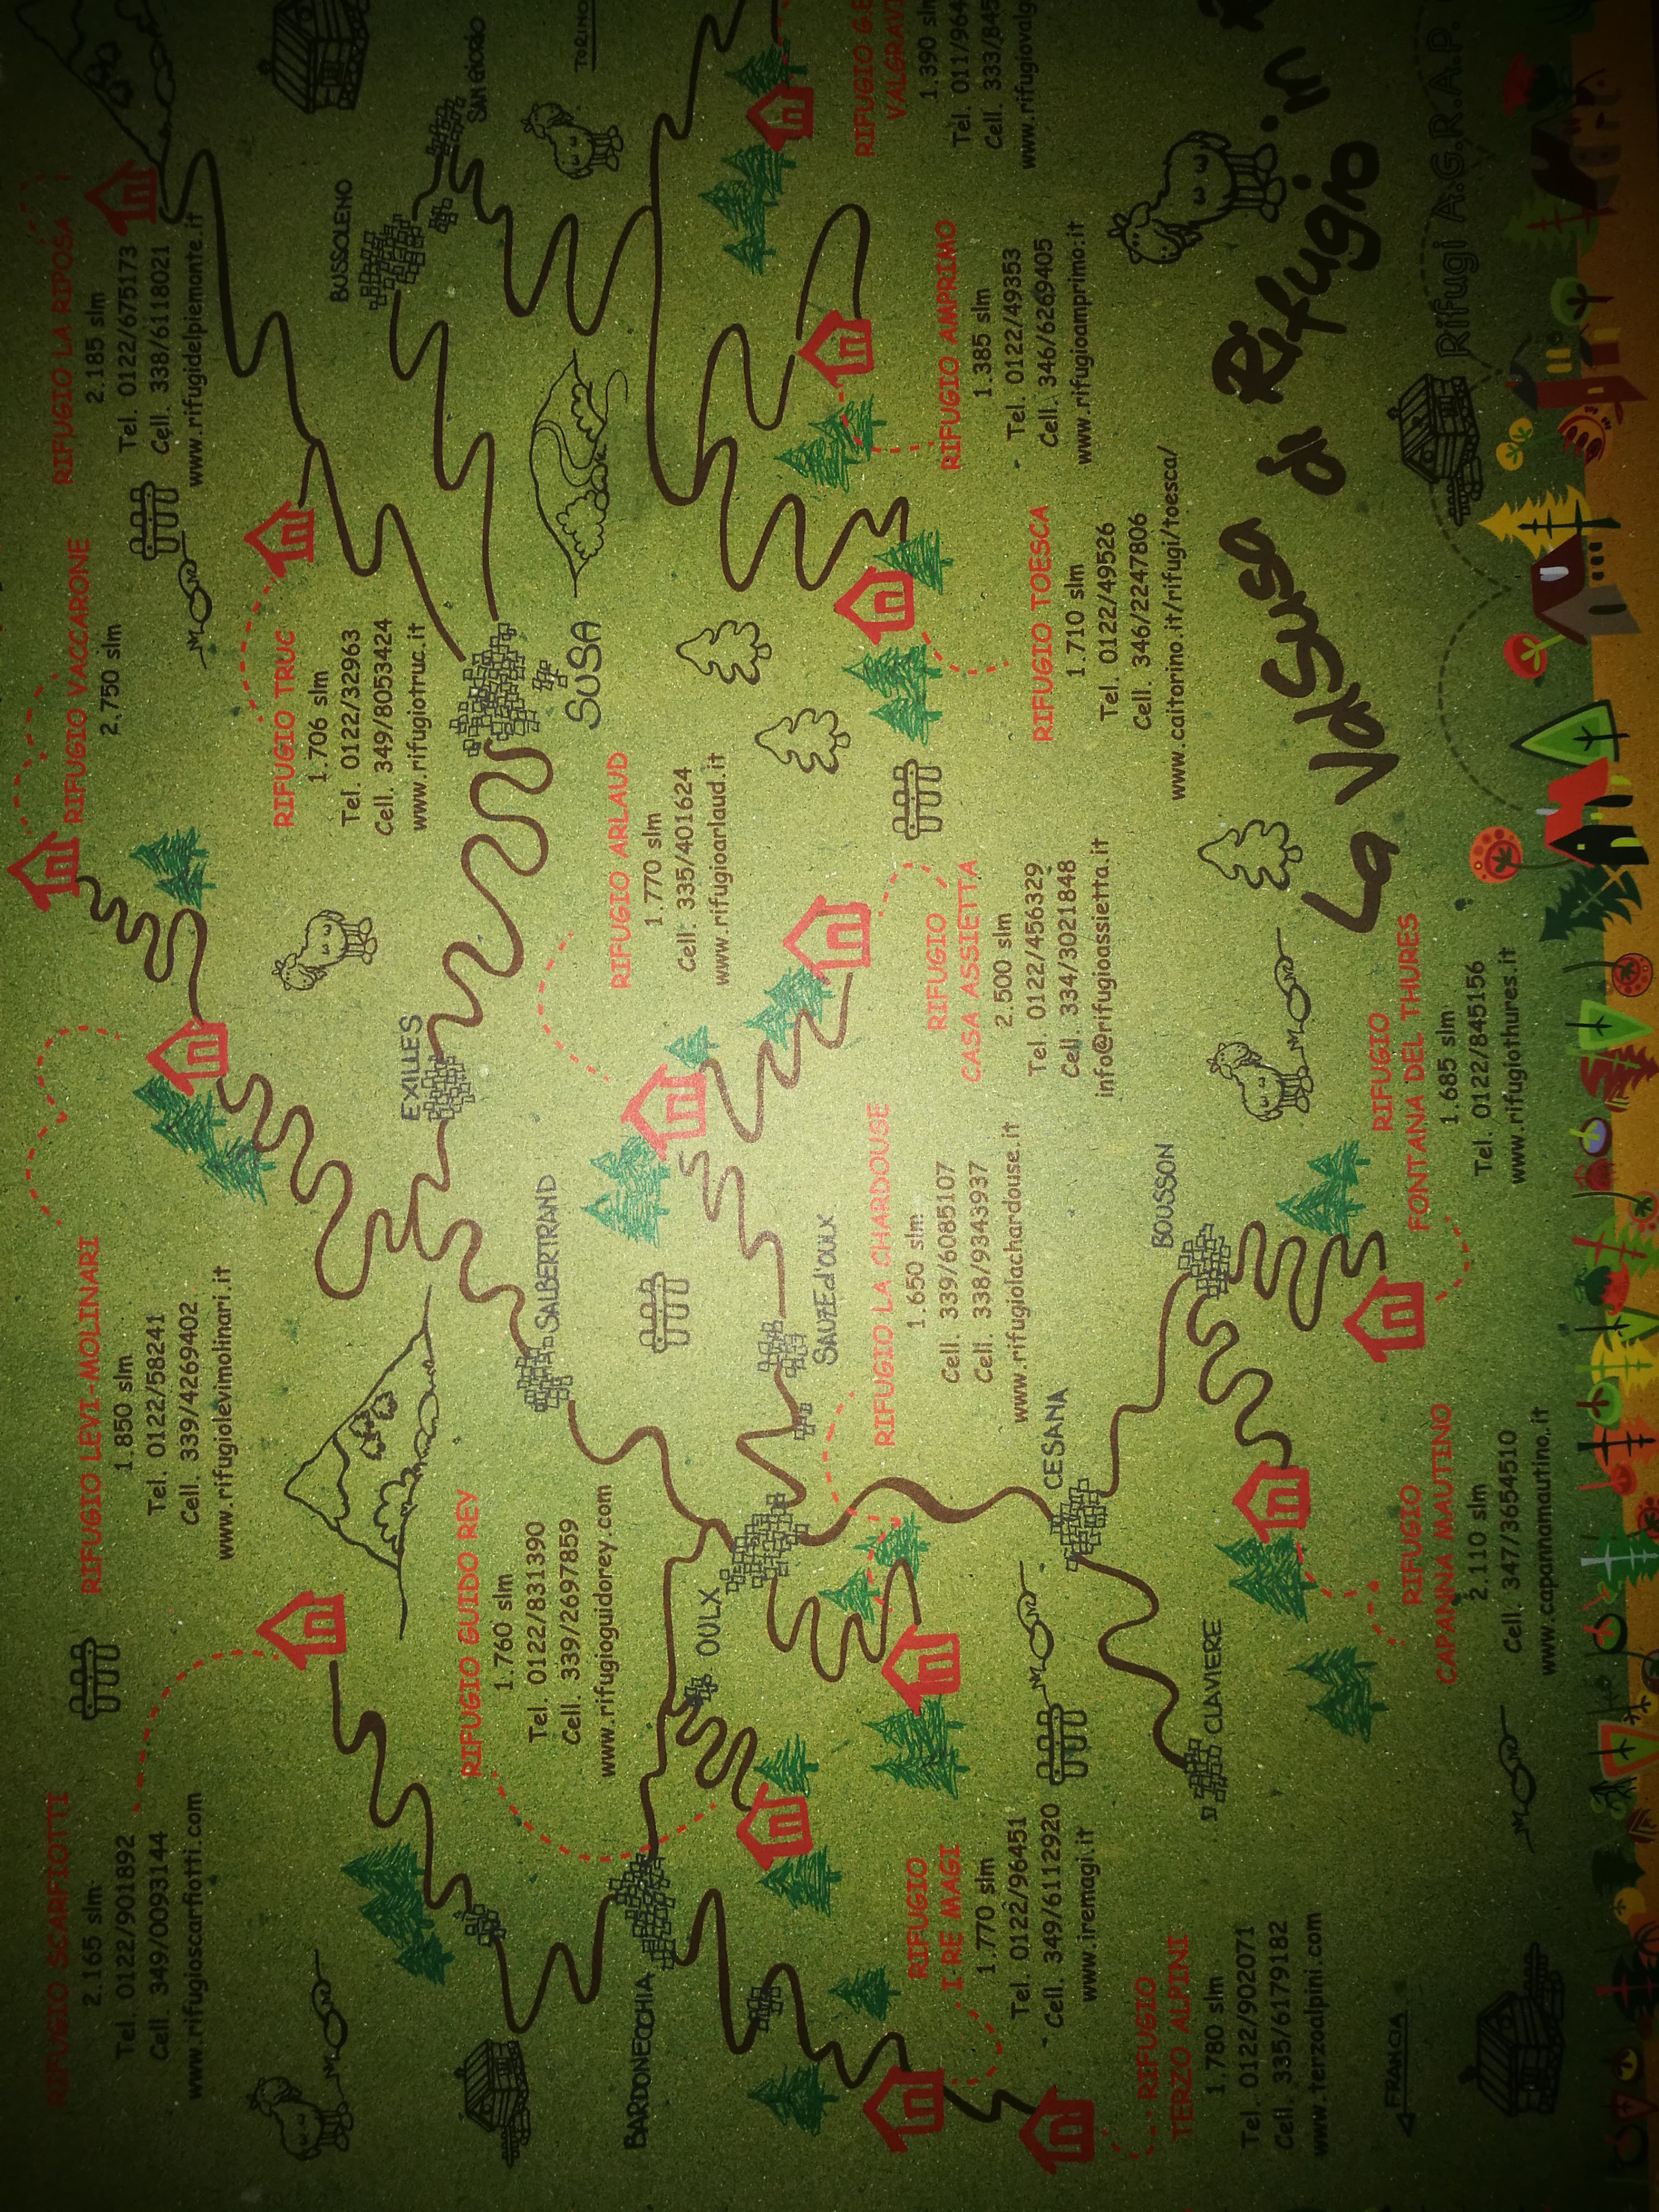 RIFUGIO SCARFIOTTI
2.165 slm
Tel. 0122/901892
Cell. 349/0093144
www.rifugioscarfiotti.com
RIFUGIO LEVI-MOLINARI
1.850 slm
Tel. 0122/58241
Cell. 339/4269402
www.rifugiolevimolinari.it
RIFUGIO VACCARONE
2.750 slm
RIFUGIO LA RIPOSA
2.185 slm
Tel. 0122/675173
Cell. 338/6118021
www.rifugidelpiemonte.it
RIFUGIO TRUC
1.706 slm
Tel. 0122/32963
Cell. 349/8053424
www.rifugiotruc.it
BUSSOLENO
SAN GIORIO
TORINO
EXILLES
SUSA
RIFUGIO GUIDO REY
1.760 slm
Tel. 0122/831390
Cell. 339/2697859
www.rifugioguidorey.com
SALBERTRAND
RIFUGIO ARLAUD
1.770 slm
Cell. 335/401624
www.rifugioarlaud.it
BARDONECCHIA
OULX
SAUZE d'OULX
RIFUGIO LA CHARDOUSE
1.650 slm
Cell. 339/6085107
Cell. 338/9343937
www.rifugiolachardouse.it
RIFUGIO
CASA ASSIETTA
2.500 slm
Tel. 0122/456329
Cell. 334/3021848
info@rifugioassietta.it
RIFUGIO TOESCA
1.710 slm
Tel. 0122/49526
Cell. 346/2247806
www.caitorino.it/rifugi/toesca/
RIFUGIO AMPRIMO
1.385 slm
Tel. 0122/49353
Cell. 346/6269405
www.rifugioamprimo.it
RIFUGIO G.E
VALGRAVI
1.390 slm
Tel. 011/964
Cell. 333/845
www.rifugiovalg
RIFUGIO
I RE MAGI
1.770 slm
Tel. 0122/96451
Cell. 349/6112920
www.iremagi.it
CESANA
BOUSSON
CLAVIERE
RIFUGIO
TERZO ALPINI
1.780 slm
Tel. 0122/902071
Cell. 335/6179182
www.terzoalpini.com
FRANCIA
RIFUGIO
CAPANNA MAUTINO
2.110 slm
Cell. 347/3654510
www.capannamautino.it
RIFUGIO
FONTANA DEL THURES
1.685 slm
Tel. 0122/845156
www.rifugiothures.it
La ValSusa di Rifugio in
Rifugi A.G.R.A.P.